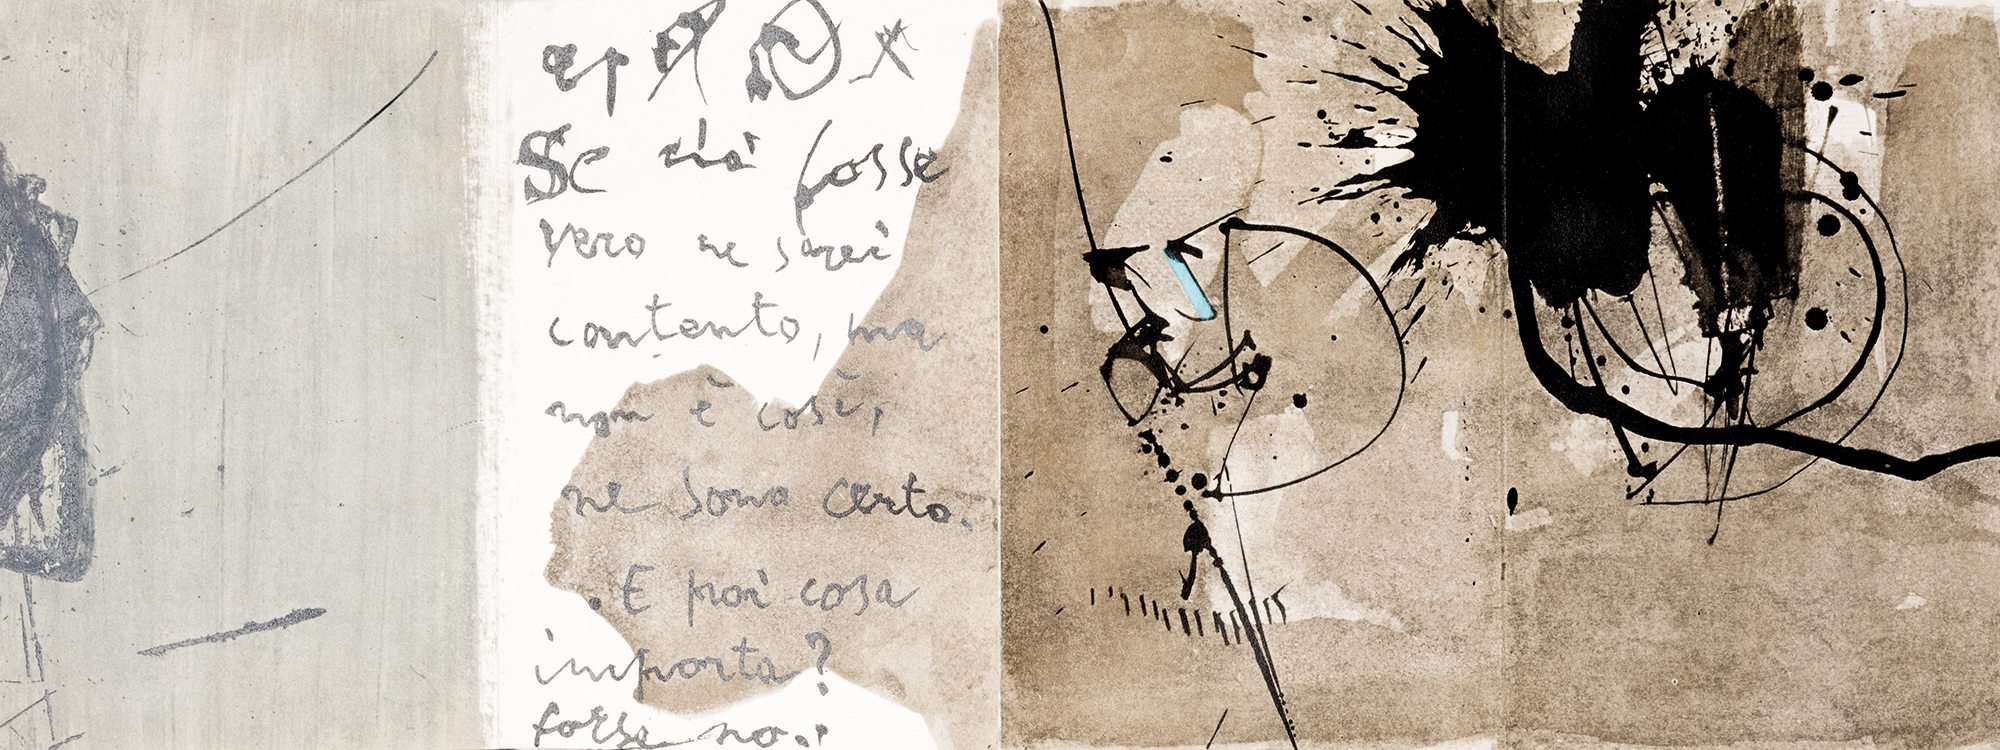 Se ciò fosse
vero ne sarei
contento, ma
non è così,
ne sono certo.
. E poi cosa
importa?
forse no.